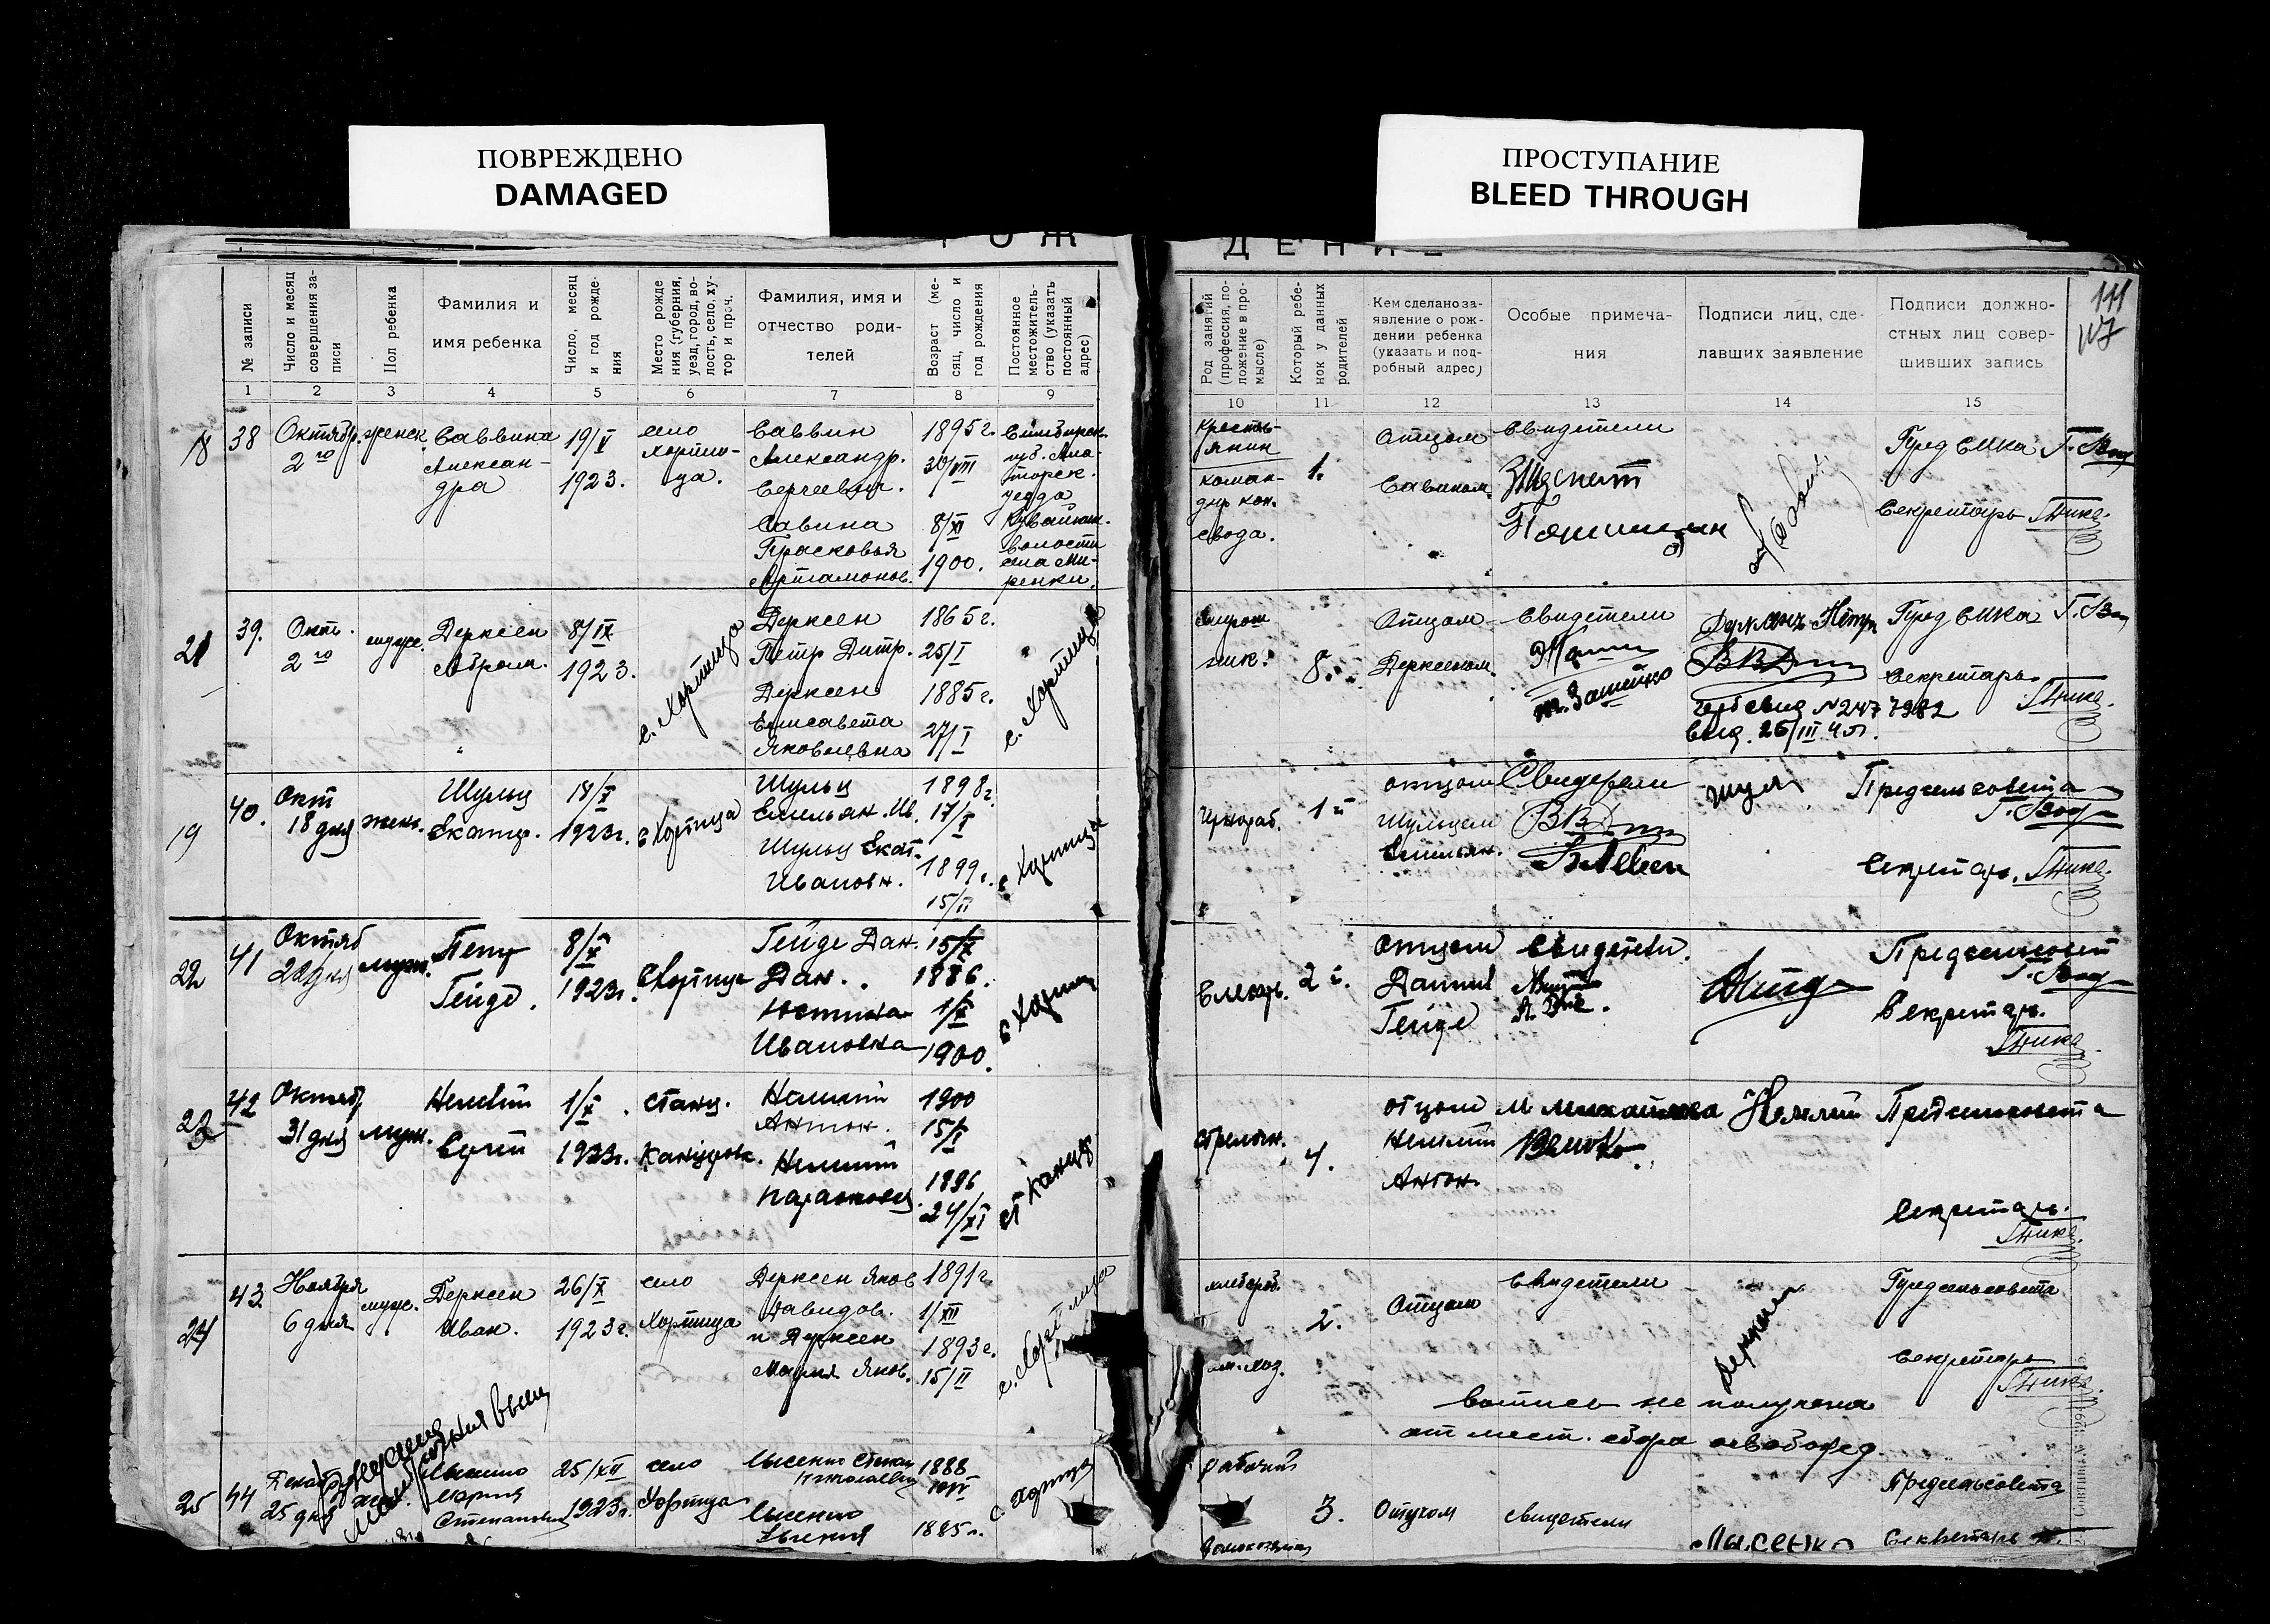 ПОВРЕЖДЕНО
DAMAGED
ПРОСТУПАНИЕ
BLEED THROUGH
РОЖ
ДЕНИЕ
№ записи
Число и месяц совершения записи
Пол ребенка
Фамилия и
имя ребенка
Число, месяц и год рождения
Место рождения (губерния, уезд, город, волость, село, хутор и проч.
Фамилия, имя и
отчество роди-
телей
Возраст (месяц, число и год рождения
Постоянное местожительство (указать постоянный адрес)
Род занятий (профессия, положение в промысле)
Который ребенок у данных родителей
Кем сделано за-
явление о рож-
дении ребенка
(указать и под-
робный адрес)
Особые примеча-
ния
Подписи лиц, сде-
лавших заявление
Подписи должно-
стных лиц совер-
шивших запись
1 2 3 4 5 6 7 8 9
10 11 12 13 14 15
18
38
Октябр.
2го
женск.
Саввина
Алексан-
дра
19/V
1923.
село
Хорти-
ца.
Саввин
Александр.
Сергеевич.
Савина
Прасковья
Артамонов.
1895 г.
30/VIII
8/XI
1900.
Симбирск.
губ. Ала-
торск.
уезда
волости
села
Кресть-
янин
коман-
дир кон.
взвода.
1.
Отцом
Савиным.
Свидетели
Пред СИКа
Секретарь
21
39.
Окт.
2го
мужс.
Дерксен
Абрам.
8/IX
1923.
с. Хортица
Дерксен
Петр Дитр.
Дерксен
Елисавета
Яковлевна
1865 г.
25/I
1885 г.
27/I
с. Хортица
8.
Отцом
Дерксеном.
Свидетели
№ 2477982
выд. 26/III
Пред СИКа
Секретарь
19
40.
Окт
18 дня
женс.
Шульц
Екатер.
18/X
1923 г.
с Хортица
Шульц
Емельян. Ив.
Шульц Екат.
Ивановн.
1898 г.
17/I
1899 г.
15/II
с Хортица
Чернораб.
1й
отцом
Шульцем
Емельян.
Свидетели
Предсельсовета
Секретарь.
22
41
Октяб
22 дня
муж.
Петр
Гейде.
8/X
1923 г.
с Хортица
Гейде Дан.
Дан.
Юстина
Ивановна
15/X
1886.
1/X
1900.
с Хортиц
Слесарь.
2й.
отцом
Даниил
Гейде
Свидетели.
Предсельсовет
Секретарь.
23
42
Октяб,
31 дня
муж.
Немлий
Сергей
1/X
1923 г.
станц.
Канцеров.
Немлий
Антон.
Немлий
Парасковья
1900
15/I
1896
24/XI
ст Канцер
4.
отцом
Немлий
Антон.
Немлий
Предсельсовета
Секретарь.
24
43.
Ноября
6 дня
мужс.
Дерксен
Иван.
26/X
1923 г.
село
Хортица
Дерксен Яков
Давидов.
и Дерксен
Мария Яков.
1891 г.
1/XII
1893 г.
15/II
с. Хортица
хлебороб.
дом. хоз.
2.
Отцом
Свидетели
Дерксен
Предсельсовета
Секретарь
выпись не получена
от мест. сбора освобожд.
25
44
Декаб
25 дня
Лысенко
Мария
Степановна
25/XII
1923 г.
село
Хортица
Лысенко Степан
Николаевич
Лысенко
Евгения
1888
1885 г.
с. Хортица
рабочий
домохозяйка
3.
Отцом
свидетели
Лысенко
Предсельсовета
Секретарь